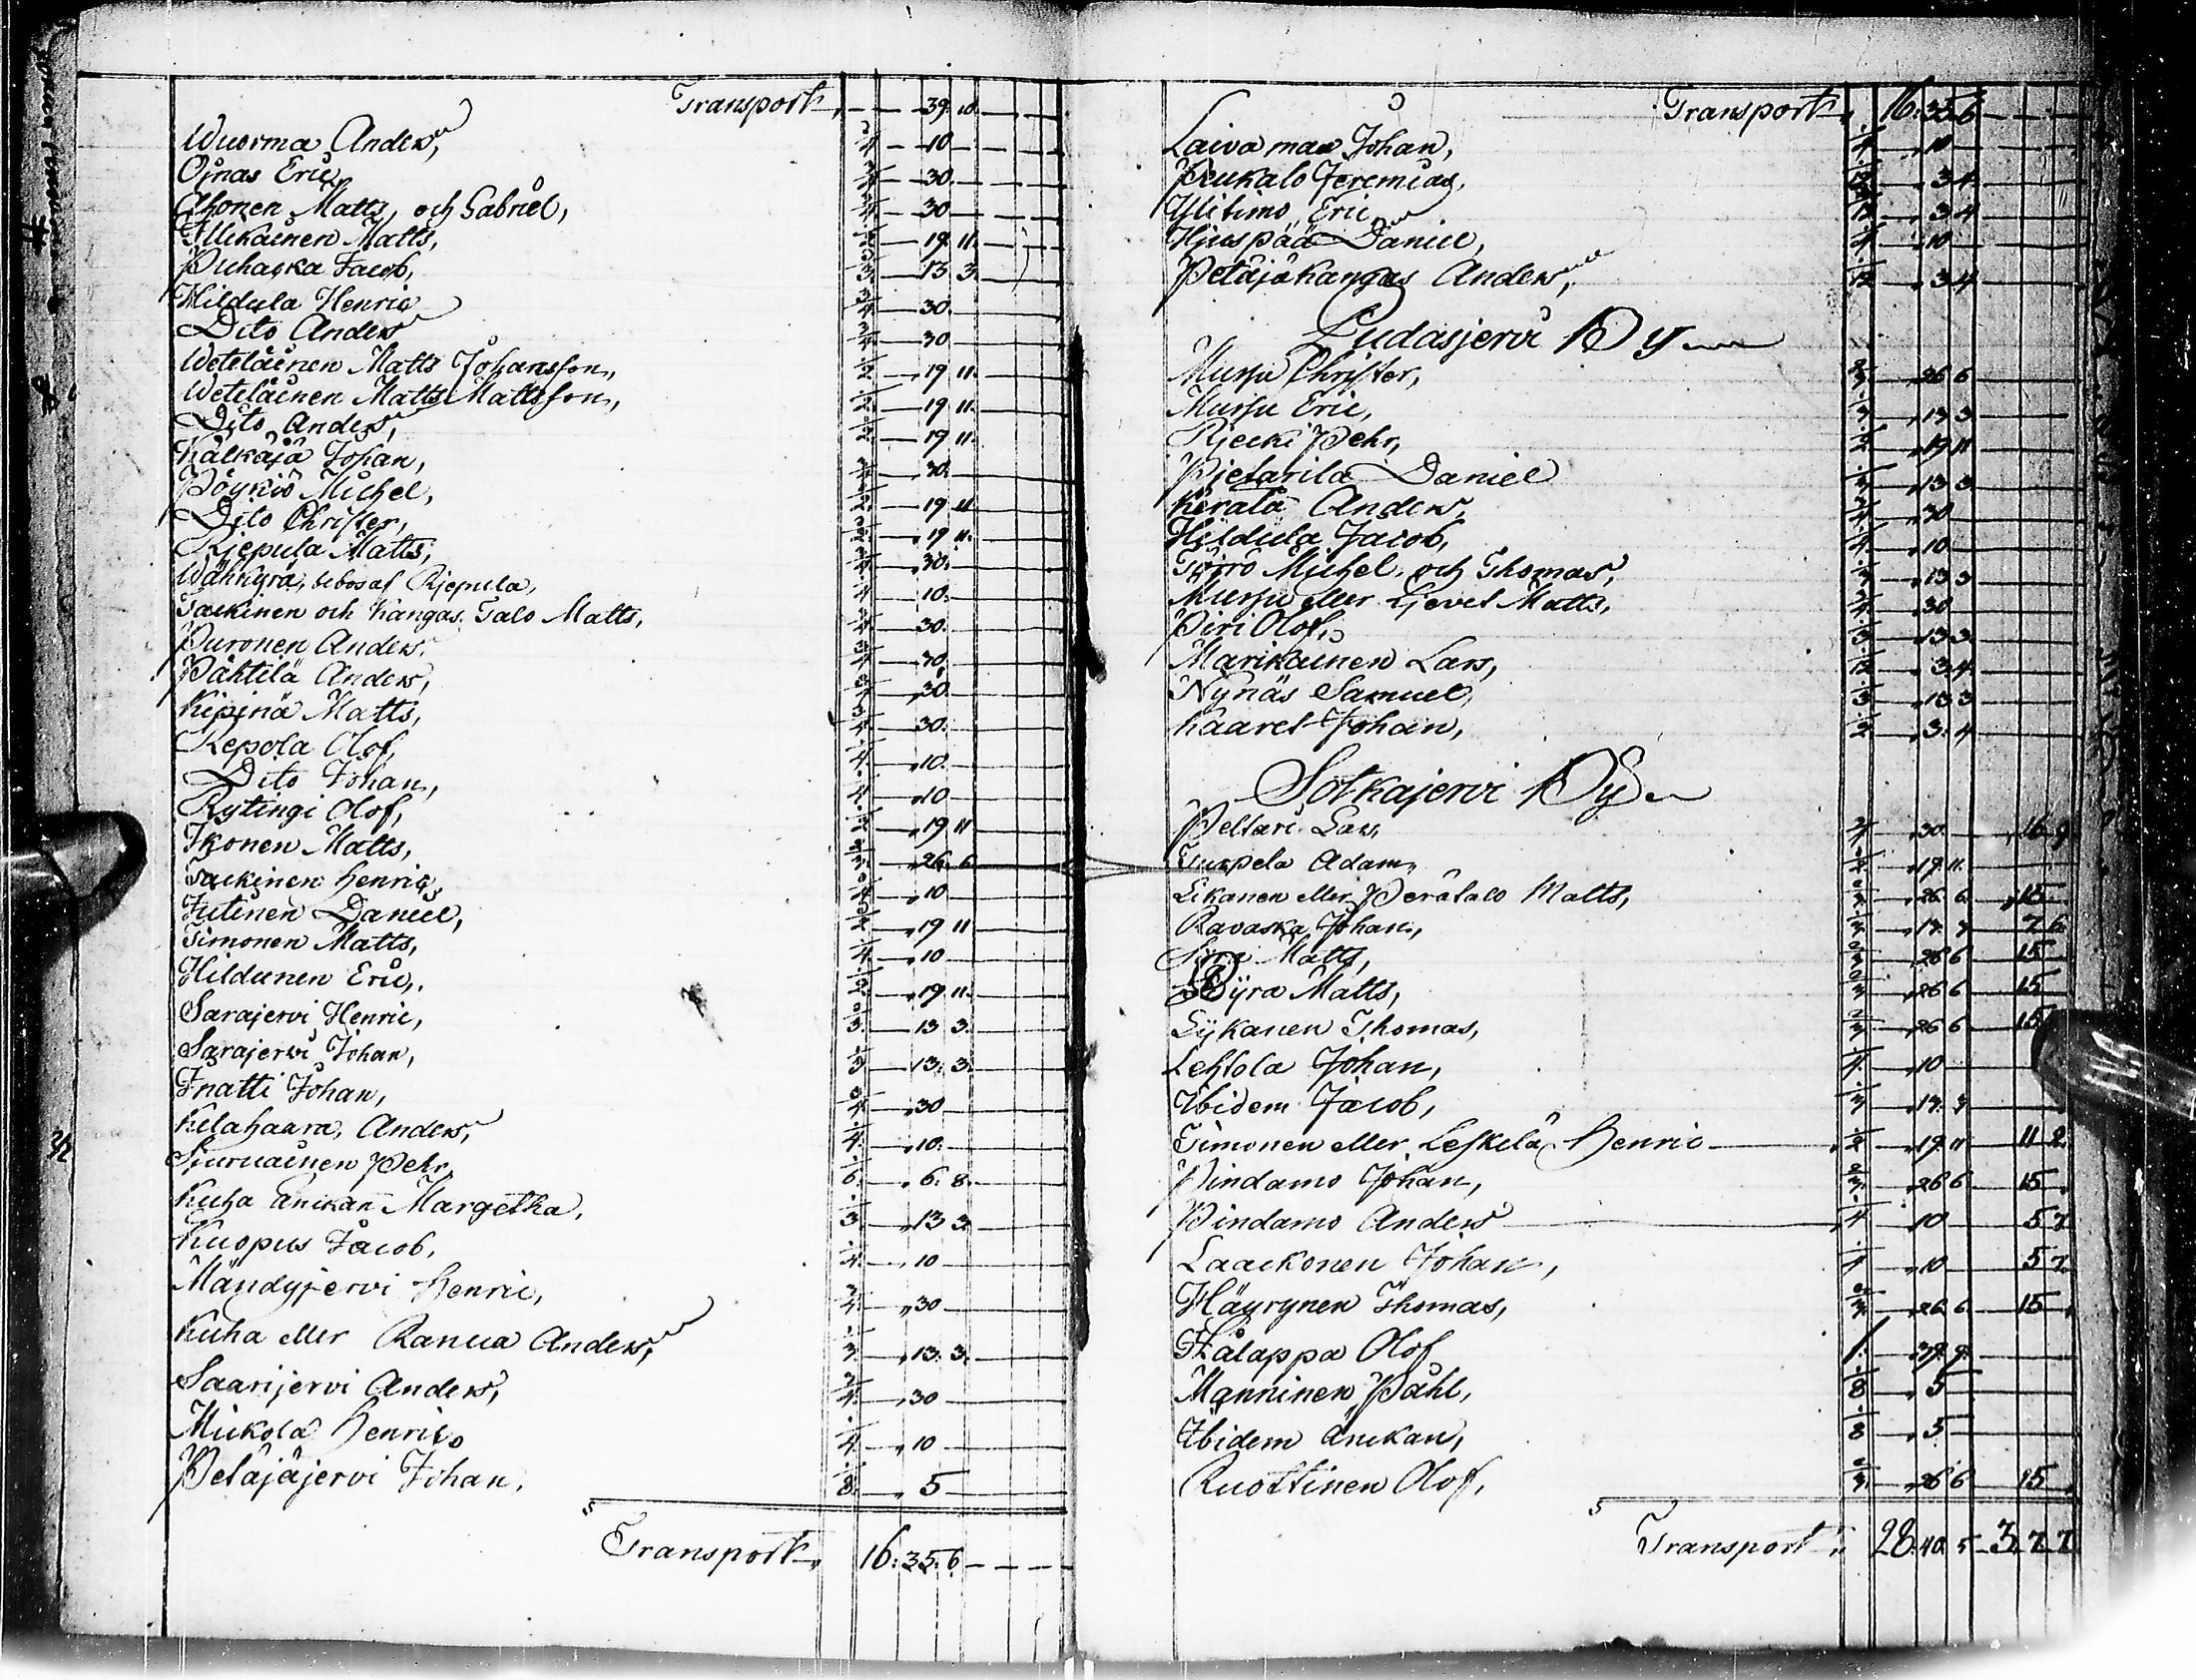 Transport, — — 39. 10. — —
Wuorma Anders, 1/4 — 10
Ojnas Eric, 3/4 — 30
Ahonen Matts, och Gabriel, 3/4 — 30
Illikainen Matts, 1/2 — 19. 11.
Puhacka Jacob, 1/3 — 13. 3.
Hildula Henric 3/4 — 30.
Dito Anders 3/4 — 30
Weteläinen Matts Johansson, 1/2 — 19 11.
Weteläinen Matts Mattsson, 1/2 — 19 11.
Dito Anders, 1/2 — 19 11.
Kälkäjä Johan, 3/4 — 30.
Pöykiö Michel, 1/2 — 19 11
Dito Christer, 1/2 — 19 11.
Rjepula Matts, 3/4 — 30.
Wähkyrä, bebos af Rjepula, 1/4 — 10.
Tackinen och Kangas Talo Matts, 3/4 — 30.
Puronen Anders, 3/4 — 30
Pähtilä Anders, 3/4 — 30
Kipinä Matts, 3/4 — 30.
Repola Olof, 1/4 — 10.
Dito Johan, 1/4 — 10
Rytingi Olof, 1/2 — 19 11
Ikonen Matts, 2/3 — 26. 6
Tackinen Henric, 1/4 — 10
Jutinen Daniel, 1/2 — 19 11
Timonen Matts, 1/4 — 10
Hildunen Eric, 1/2 — 19 11.
Sarajervi Henric, 1/3 — 13 3.
Sarajervi Johan, 1/3 — 13. 3.
Inatti Johan, 3/4 — 30
Kelahaara, Anders, 1/4 — 10.
Siuruainen Pehr, 1/6. — 6. 8.
Kuha änckan Margetha, 1/3 — 13 3.
Kuopus Jacob, 1/4 — 10
Mändyjervi Henric, 3/4 — 30
Kuha eller Ranua Anders, 1/3 — 13. 3.
Saarijervi Anders, 3/4 — 30
Mickola Henric 1/4 — 10
Petäjäjervi Johan, 1/8 — 5
Transport, 16. 35. 6 — — —
Transport, 16. 35. 6 — — —
Laiva maa Johan, 1/4 — 10
Peukalo Jeremias, 1/12 — 3 4
Ylitimo, Eric 1/12 — 3 4
Hjuspää Daniel, 1/4 — 10
Petäjäkangas Anders, 1/12 — 3 4
Pudasjervi By
Mursu Christer, 2/3 — 26 6
Mursu Eric, 1/3 — 13 3
Rjecki Pehr, 1/2 — 19 11
Pjetarila Daniel 1/3 — 13 3
Kerälä Anders, 3/4 — 30
Hildula Jacob, 1/4 — 10
Törrö Michel, och Thomas, 1/3 — 13 3
Mursu eller Ljevet Matts, 3/4 — 30
Piri Olof, 1/3 — 13 3
Marikainen Lars, 1/12 — 3 4
Nynäs Samuel, 1/3 — 13 3
Kaaret Johan, 3. 4
Sotkajervi By
Peltari Lars, 3/4 — 30 — 16 9
Turpela Adam, 1/2 — 19 11.
Likanen eller Perätalo Matts, 2/3 — 26 6 — 15
Ravaska Johan, 1/3 — 13. 3 7 6
Matts, 2/3 — 26 6 15
Pyrä Matts, 2/3 — 26 6 15
Lykanen Thomas, 2/3 — 26 6 15
Lehtola Johan, 1/4 — 10
Ibidem Jacob, 1/3 — 13. 3
Timonen eller Leskelä Henric 1/2 — 19 11 11 2.
Pindamo Johan, 2/3 — 26 6 15
Pindamo Anders 1/4 — 10 5 7
Laackonen Johan, 1/4 — 10 5 7
Häyrynen Thomas, 2/3 — 26. 6 15
Hålappa Olof 1. — 39. 9.
Manninen, Påhl, 1/8 — 5
Ibidem änckan, 1/8 — 5
Ruottinen Olof, 2/3 — 26 6 15
Transport, 28. 40. 5 — 3. 7. 7